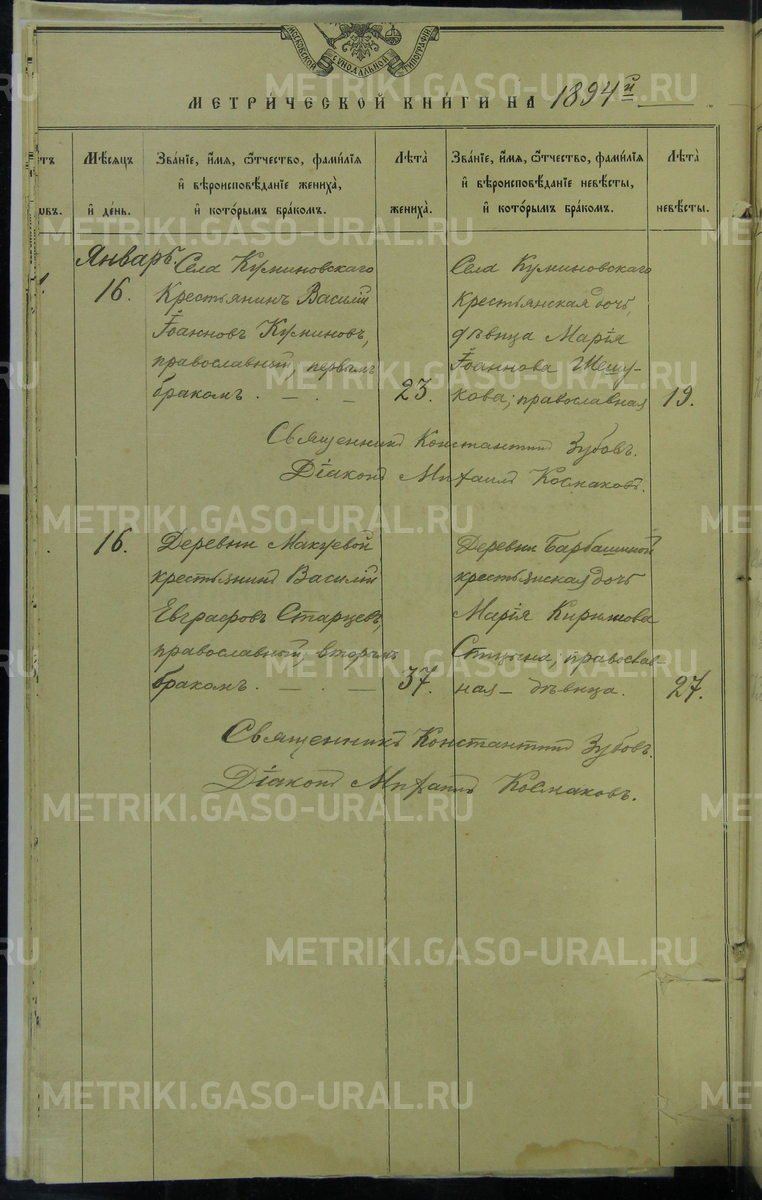 МОСКОВСКОЙ СѴНОДАЛЬНОЙ ТИПОГРАФІИ
МЕТРИ́ЧЕСКОЙ КНИ́ГИ НА 1894й
Мѣ́сяцъ и҆ де́нь.
Зва́нїе, и҆́мя, ѻ҆́тчество, фами́лїя
и҆ вѣроисповѣ́данїе жениха̀,
и҆ кото́рымъ бра́комъ.
Лѣ́та жениха̀.
Зва́нїе, и҆́мя, ѻ҆́тчество, фами́лїя
и҆ вѣроисповѣ́данїе невѣ́сты,
и҆ кото́рымъ бра́комъ.
Лѣ́та невѣ́сты.
Январь.
16.
Села Куминовскаго
Крестьянинъ Василій
Іоанновъ Куминовъ,
православный, первымъ
бракомъ. — . —
23.
Села Куминовскаго
крестьянская дочь
дѣвица Марія
Іоаннова Шешу-
кова; православная
19.
Священникъ Константинъ Зубовъ.
Діаконъ Михаилъ Космаковъ.
16.
Деревни Макуевой
крестьянинъ Василій
Евграфовъ Старцевъ,
православный, вторымъ
бракомъ. — . —
37.
Деревни Барбашиной
крестьянская дочь
Марія Кирилова
православ-
ная — дѣвица.
27.
Священникъ Константинъ Зубовъ.
Діаконъ Михаилъ Космаковъ.
METRIKI.GASO-URAL.RU